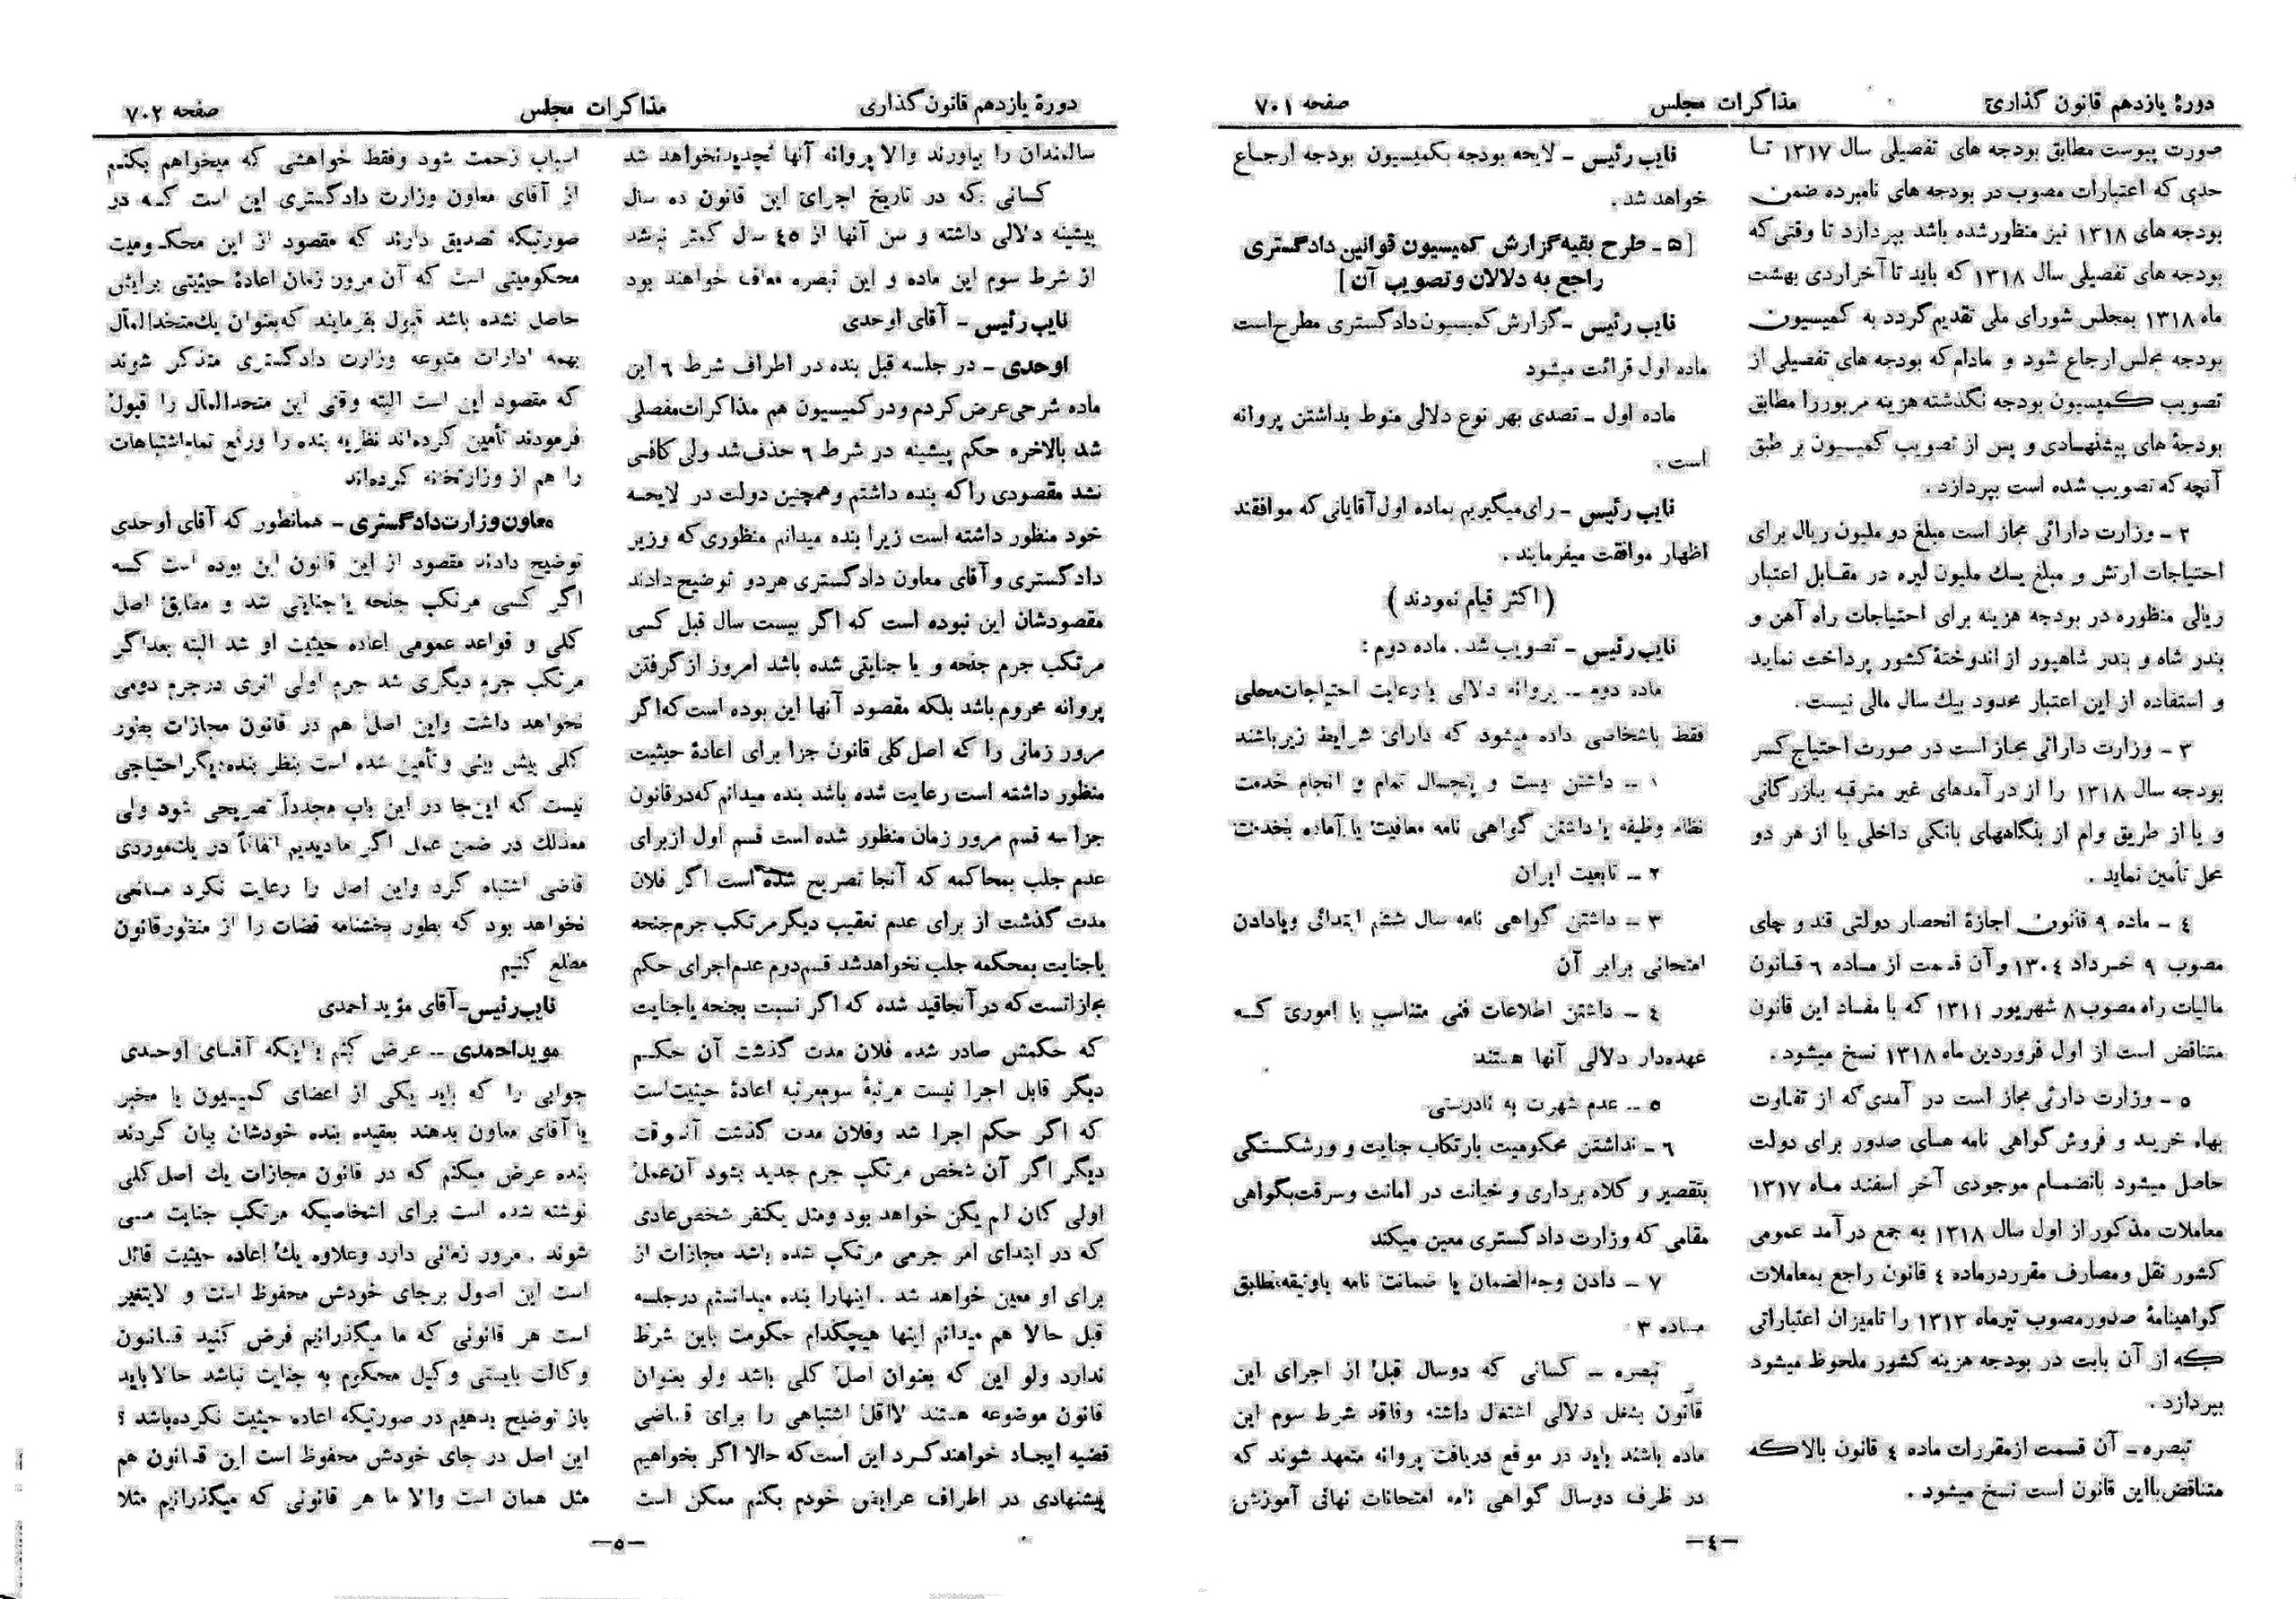 دورهٔ یازدهم قانون گذاری
مذاکرات مجلس
صفحه ۷۰۱
صورت پیوست مطابق بودجه های تفصیلی سال ۱۳۱۷ تا
حدی که اعتبارات مصوب در بودجه های نامبرده ضمن
بودجه های ۱۳۱۸ نیز منظورشده باشد بپردازد تا وقتی که
بودجه های تفصیلی سال ۱۳۱۸ که باید تا آخر اردی بهشت
ماه ۱۳۱۸ بمجلس شورای ملی تقدیم گردد به کمیسیون
بودجه مجلس ارجاع شود و مادام که بودجه های تفصیلی از
تصویب کمیسیون بودجه نگذشته هزینه مزبور را مطابق
بودجهٔ های پیشنهادی و پس از تصویب کمیسیون بر طبق
آنچه که تصویب شده است بپردازد .
۲ - وزارت دارائی مجاز است مبلغ دو ملیون ریال برای
احتیاجات ارتش و مبلغ یک ملیون لیره در مقابل اعتبار
ریالی منظوره در بودجه هزینه برای احتیاجات راه آهن و
بندر شاه و بندر شاهپور از اندوختهٔ کشور پرداخت نماید
و استفاده از این اعتبار محدود بیک سال مالی نیست .
۳ - وزارت دارائی مجاز است در صورت احتیاج کسر
بودجه سال ۱۳۱۸ را از درآمدهای غیر مترقبه بازرگانی
و یا از طریق وام از بنگاههای بانکی داخلی یا از هر دو
محل تأمین نماید .
٤ - ماده ۹ قانون اجازهٔ انحصار دولتی قند و چای
مصوب ۹ خرداد ۱۳۰٤ و آن قسمت از ماده ٦ قانون
مالیات راه مصوب ۸ شهریور ۱۳۱۱ که با مفاد این قانون
متناقض است از اول فروردین ماه ۱۳۱۸ نسخ میشود .
٥ - وزارت دارئی مجاز است در آمدی که از تفاوت
بهاء خرید و فروش گواهی نامه های صدور برای دولت
حاصل میشود بانضمام موجودی آخر اسفند ماه ۱۳۱۷
معاملات مذکور از اول سال ۱۳۱۸ به جمع درآمد عمومی
کشور نقل و مصارف مقرر در ماده ٤ قانون راجع بمعاملات
گواهینامهٔ صدور مصوب تیرماه ۱۳۱۳ را تامیزان اعتباراتی
که از آن بابت در بودجه هزینه کشور ملحوظ میشود
بپردازد .
تبصره - آن قسمت از مقررات ماده ٤ قانون بالا که
متناقض بااین قانون است نسخ میشود .
نایب رئیس - لایحه بودجه بکمیسیون بودجه ارجاع
خواهد شد .
[ ٥ - طرح بقیه گزارش کمیسیون قوانین دادگستری
راجع به دلالان و تصویب آن ]
نایب رئیس - گزارش کمیسیون دادگستری مطرح است
ماده اول قرائت میشود
ماده اول - تصدی بهر نوع دلالی منوط بداشتن پروانه
است .
نایب رئیس - رای میگیریم بماده اول آقایانی که موافقند
اظهار موافقت میفرمایند .
( اکثر قیام نمودند )
نایب رئیس - تصویب شد . ماده دوم :
ماده دوم - پروانه دلالی با رعایت احتیاجات محلی
فقط باشخاصی داده میشود که دارای شرایط زیر باشند
۱ - داشتن بیست و پنجسال تمام و انجام خدمت
نظام وظیفه یا داشتن گواهی نامه معافیت یا آماده بخدمت
۲ - تابعیت ایران
۳ - داشتن گواهی نامه سال ششم ابتدائی و یا دادن
امتحانی برابر آن
٤ - داشتن اطلاعات فنی متناسب با اموری که
عهده دار دلالی آنها هستند
٥ - عدم شهرت به نادرستی
٦ - نداشتن محکومیت بارتکاب جنایت و ورشکستگی
بتقصیر و کلاه برداری و خیانت در امانت و سرقت بگواهی
مقامی که وزارت دادگستری معین میکند
۷ - دادن وجه الضمان یا ضمانت نامه یا وثیقه مطابق
ماده ۳
تبصره - کسانی که دوسال قبل از اجرای این
قانون بشغل دلالی اشتغال داشته و فاقد شرط سوم این
ماده باشند باید در موقع دریافت پروانه متعهد شوند که
در ظرف دوسال گواهی نامه امتحانات نهائی آموزش
-٤-
دورهٔ یازدهم قانون گذاری
مذاکرات مجلس
صفحه ۷۰۲
سالمندان را بیاورند والا پروانه آنها تجدید نخواهد شد
کسانی که در تاریخ اجرای این قانون ده سال
پیشینه دلالی داشته و سن آنها از ٤٥ سال کمتر نباشد
از شرط سوم این ماده و این تبصره معاف خواهند بود
نایب رئیس - آقای اوحدی
اوحدی - در جلسه قبل بنده در اطراف شرط ٦ این
ماده شرحی عرض کردم و در کمیسیون هم مذاکرات مفصلی
شد بالاخره حکم پیشینه در شرط ٦ حذف شد ولی کافی
نشد مقصودی را که بنده داشتم و همچنین دولت در لایحه
خود منظور داشته است زیرا بنده میدانم منظوری که وزیر
دادگستری و آقای معاون دادگستری هردو توضیح دادند
مقصودشان این نبوده است که اگر بیست سال قبل کسی
مرتکب جرم جنحه و یا جنایتی شده باشد امروز از گرفتن
پروانه محروم باشد بلکه مقصود آنها این بوده است که اگر
مرور زمانی را که اصل کلی قانون جزا برای اعادهٔ حیثیت
منظور داشته است رعایت شده باشد بنده میدانم که در قانون
جزا سه قسم مرور زمان منظور شده است قسم اول از برای
عدم جلب بمحاکمه که آنجا تصریح شده است اگر فلان
مدت گذشت از برای عدم تعقیب دیگر مرتکب جرم جنحه
یا جنایت بمحکمه جلب نخواهد شد قسم دوم عدم اجرای حکم
مجازاتست که در آنجا قید شده که اگر نسبت بجنحه یا جنایت
که حکمش صادر شده فلان مدت گذشت آن حکم
دیگر قابل اجرا نیست مرتبهٔ سوم مرتبه اعادهٔ حیثیت است
که اگر حکم اجرا شد و فلان مدت گذشت آنوقت
دیگر اگر آن شخص مرتکب جرم جدید بشود آن عمل
اولی کان لم یکن خواهد بود و مثل یکنفر شخص عادی
که در ابتدای امر جرمی مرتکب شده باشد مجازات از
برای او معین خواهد شد . اینها را بنده میدانستم در جلسه
قبل حالا هم میدانم اینها هیچکدام حکومت باین شرط
ندارد ولو این که بعنوان اصل کلی باشد ولو بعنوان
قانون موضوعه هستند لااقل اشتباهی را برای قاضی
قضیه ایجاد خواهند کرد این است که حالا اگر بخواهیم
پیشنهادی در اطراف عرایض خودم بکنم ممکن است
اسباب زحمت شود و فقط خواهشی که میخواهم بکنم
از آقای معاون وزارت دادگستری این است که در
صورتیکه تصدیق دارند که مقصود از این محکومیت
محکومیتی است که آن مرور زمان اعادهٔ حیثیتی برایش
حاصل نشده باشد قبول بفرمایند که بعنوان یک متحدالمآل
بهمه ادارات متبوعه وزارت دادگستری متذکر شوند
که مقصود این است البته وقتی این متحدالمآل را قبول
فرمودند تأمین کرده اند نظریه بنده را و رفع تمام اشتباهات
را هم از وزارتخانه کرده اند
معاون وزارت دادگستری - همانطور که آقای اوحدی
توضیح دادند مقصود از این قانون این بوده است که
اگر کسی مرتکب جنحه یا جنایتی شد و مطابق اصل
کلی و قواعد عمومی اعاده حیثیت او شد البته بعد اگر
مرتکب جرم دیگری شد جرم اولی اثری در جرم دومی
نخواهد داشت و این اصل هم در قانون مجازات بطور
کلی پیش بینی و تأمین شده است بنظر بنده دیگر احتیاجی
نیست که این جا در این باب مجدداً تصریحی شود ولی
معذلک در ضمن عمل اگر ما دیدیم اتفاقاً در یک موردی
قاضی اشتباه کرد و این اصل را رعایت نکرد مانعی
نخواهد بود که بطور بخشنامه قضات را از منظور قانون
مطلع کنیم
نایب رئیس - آقای مؤید احمدی
موید احمدی - عرض کنم با اینکه آقای اوحدی
جوابی را که باید یکی از اعضای کمیسیون یا مخبر
یا آقای معاون بدهند بعقیده بنده خودشان بیان کردند
بنده عرض میکنم که در قانون مجازات یک اصل کلی
نوشته شده است برای اشخاصیکه مرتکب جنایت می
شوند . مرور زمانی دارد و علاوه یک اعاده حیثیت قائل
است این اصول برجای خودش محفوظ است و لایتغیر
است هر قانونی که ما میگذرانیم فرض کنید قانون
وکالت بایستی وکیل محکوم به جنایت نباشد حالا باید
باز توضیح بدهیم در صورتیکه اعاده حیثیت نکرده باشد ؟
این اصل در جای خودش محفوظ است این قانون هم
مثل همان است والا ما هر قانونی که میگذرانیم مثلا
-٥-